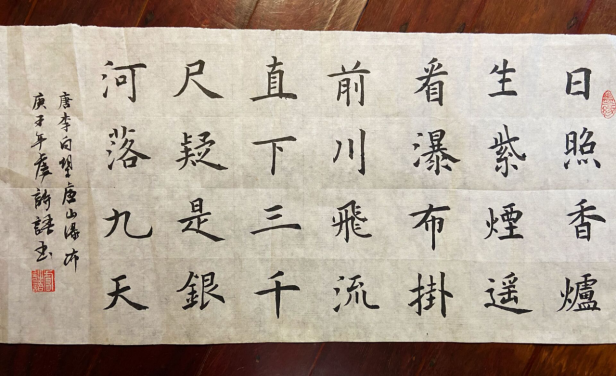 日照香爐
生紫煙遥
看瀑布掛
前川飛流
直下三千
尺疑是銀
河落九天
唐李白望庐山瀑布
庚子年虞許語书